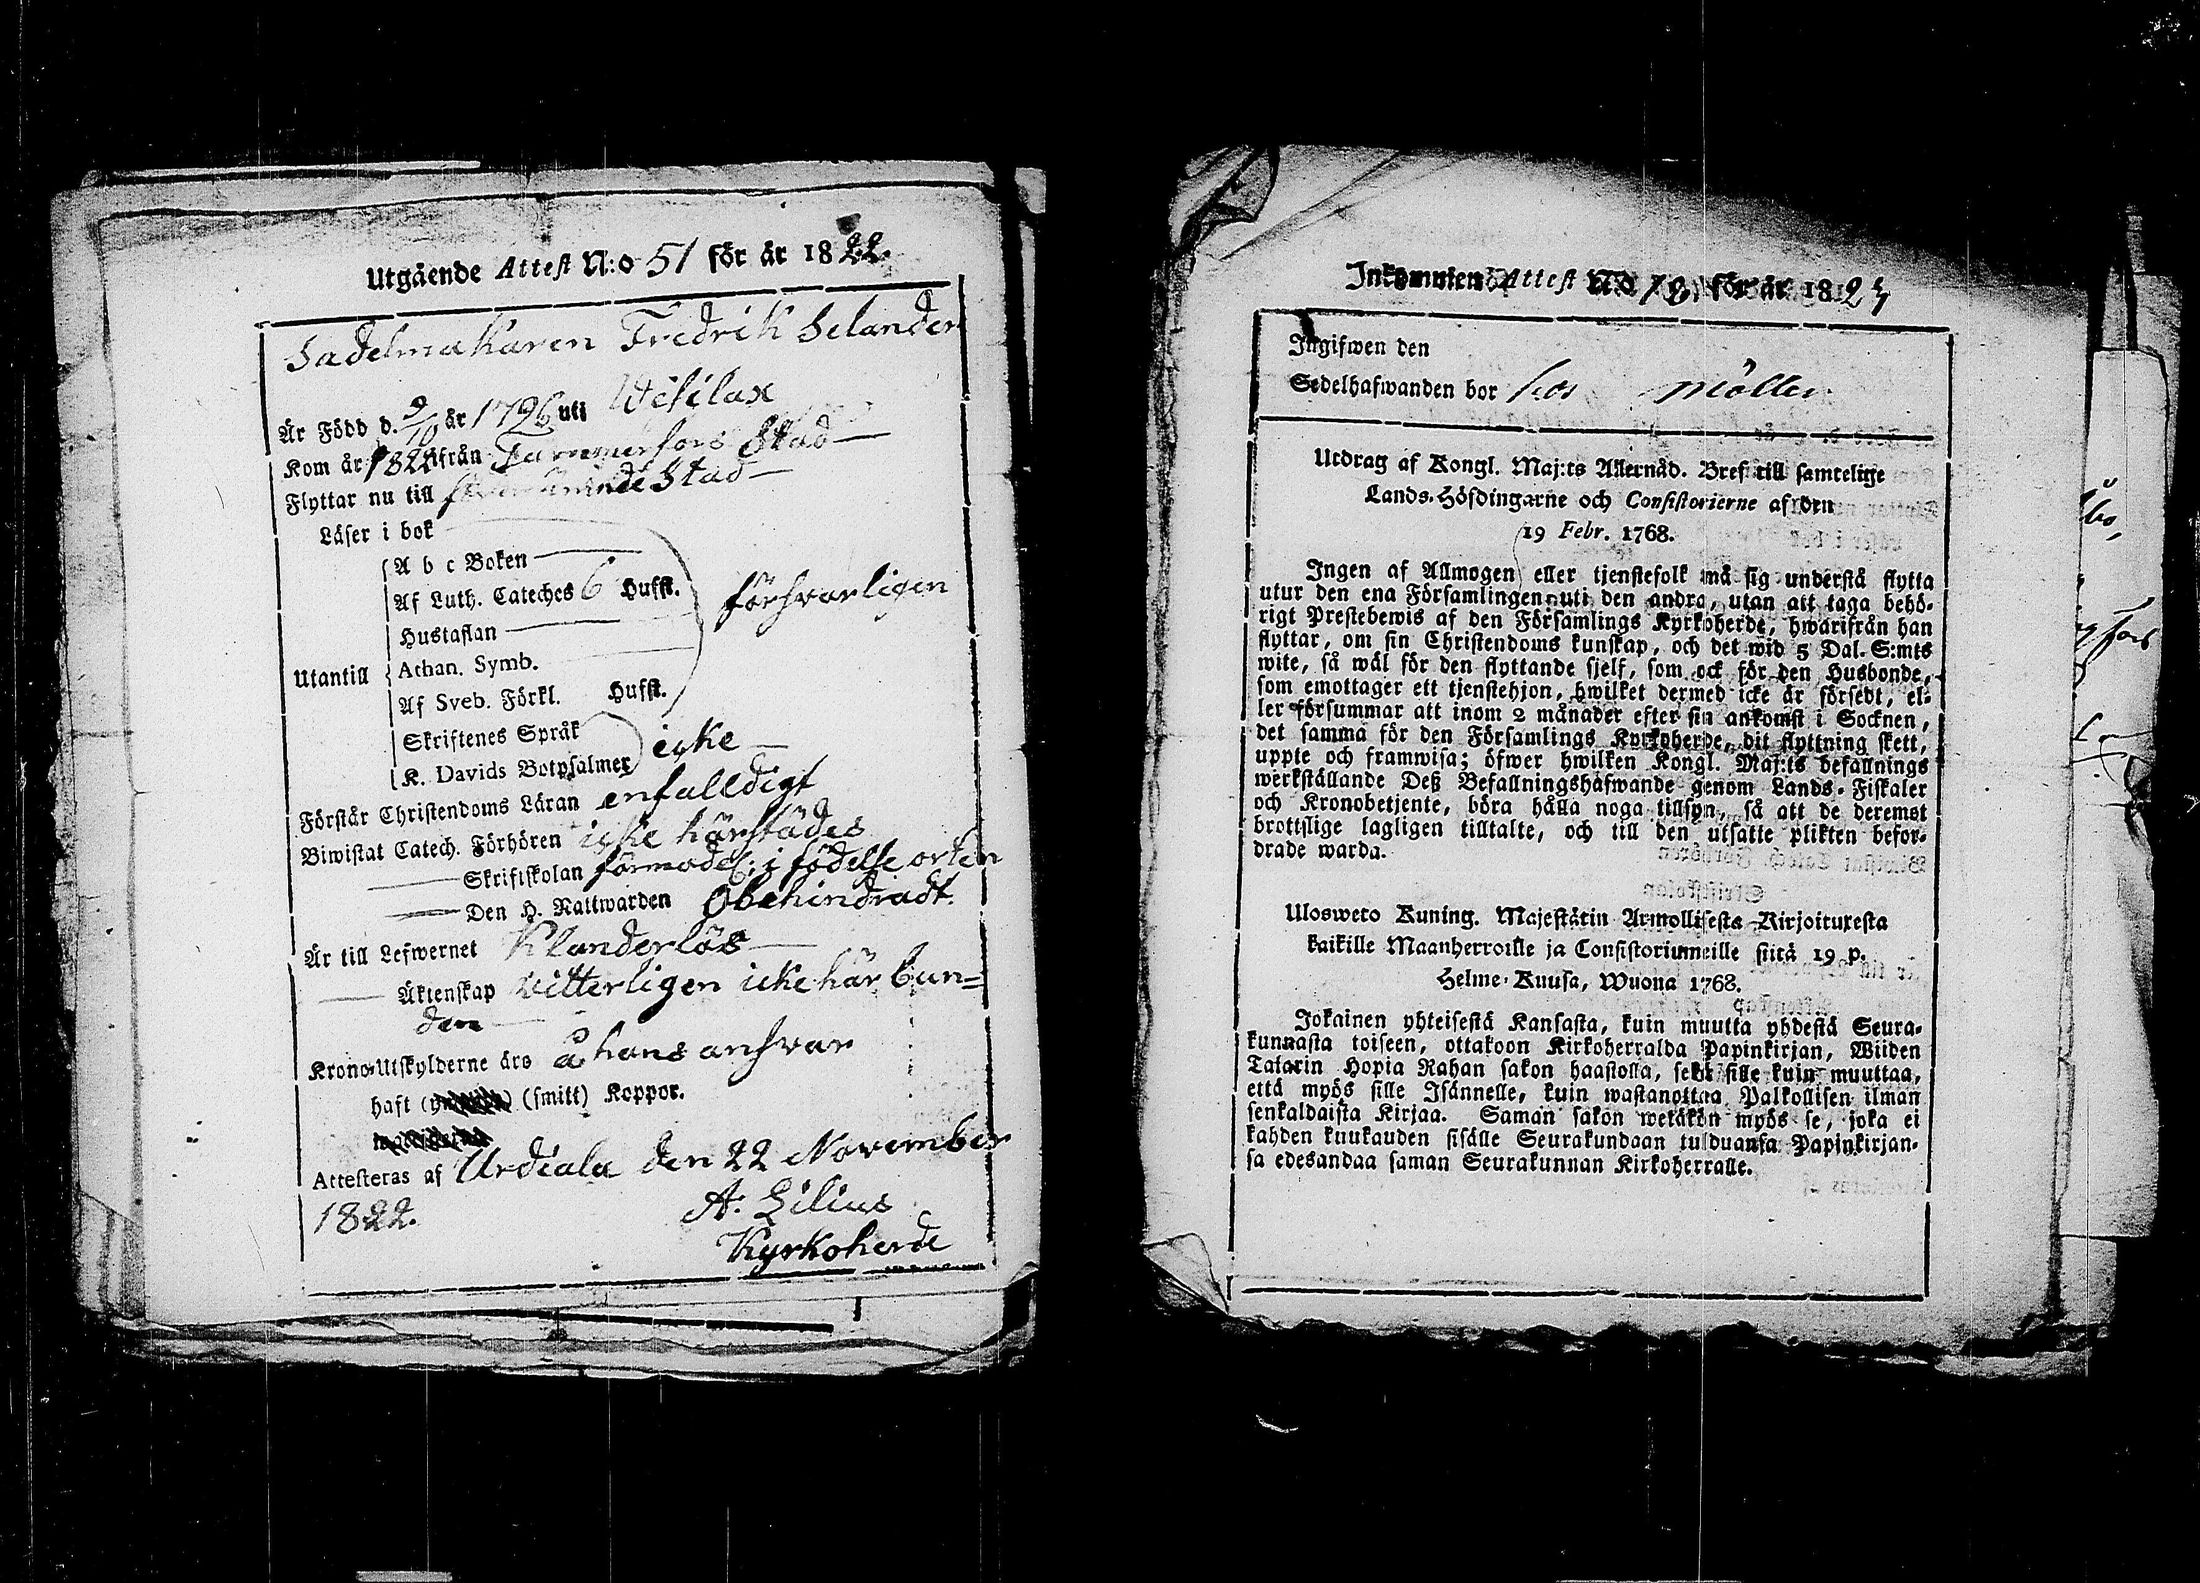 Utgående Attest N:o 51 för år 1822.
Sadelmakaren Fredrik Selander
Är Född d. 9/10 år 1796 uti Wesilax
Kom år 1822 ifrån Tammerfors Stad
Flyttar nu till Stad
Läser i bok
A b c Boken
Af Luth. Cateches 6 Hufst.
försvarligen
Hustaflan
Utantill
Athan. Symb.
Af Sveb. Förkl. Hufst.
Skriftenes Språk
icke
K. Davids Botpsalmer
Förstår Christendoms Läran enfalldigt
Biwistat Catech. Förhören icke härstädes
Skriftskolan förmodel: i födelse orten
Den H. Nattwarden Obehindradt.
Är till Lefwernet Klanderlös
Äktenskap vitterligen icke här bun=
den
Krono-Utskylderne äro å hans ansvar
haft (smitt) Koppor.
Attesteras af Urdiala den 22 November
1822.
A. Lilius
Kyrkoherde
Inkommen Attest N:o för år 1823
Ingifwen den
Sedelhafwanden bor hos Möller
Utdrag af Kongl. Maj:ts Allernåd. Bref till samtelige
Lands-Höfdingarne och Consistorierne af den
19 Febr. 1768.
Ingen af Allmogen eller tjenstefolk må sig understå flytta
utur den ena Församlingen uti den andra, utan att taga behö-
rigt Prestebewis af den Församlings Kyrkoherde, hwarifrån han
flyttar, om sin Christendoms kunskap, och det wid 5 Dal. S:mts
wite, så wäl för den flyttande sjelf, som ock för den Husbonde,
som emottager ett tjenstehjon, hwilket dermed icke är försedt, el-
ler försummar att inom 2 månader efter sin ankomst i Socknen,
det samma för den Församlings Kyrkoherde, dit flyttning skett,
uppte och framwisa; öfwer hwilken Kongl. Maj:ts befallnings
werkställande Deß Befallningshafwande genom Lands-Fiskaler
och Kronobetjente, böra hålla noga tillsyn, så att de deremot
brottslige lagligen tilltalte, och till den utsatte plikten befor-
drade warda.
Ulosweto Kuning. Majestätin Armollisesta Kirjoituxesta
kaikille Maanherroille ja Consistoriumeille siitä 19 p.
Helme-Kuusa, Wuona 1768.
Jokainen yhteisestä Kansasta, kuin muutta yhdestä Seura-
kunnasta toiseen, ottakoon Kirkoherralda Papinkirjan, Wiiden
Talarin Hopia Rahan sakon haastolla, sekä sille kuin muuttaa,
että myös sille Isännelle, kuin wastanottaa Palkollisen ilman
senkaldaista Kirjaa. Saman sakon wetäkön myös se, joka ei
kahden kuukauden sisälle Seurakundaan tulduansa Papinkirjan-
sa edesandaa saman Seurakunnan Kirkoherralle.